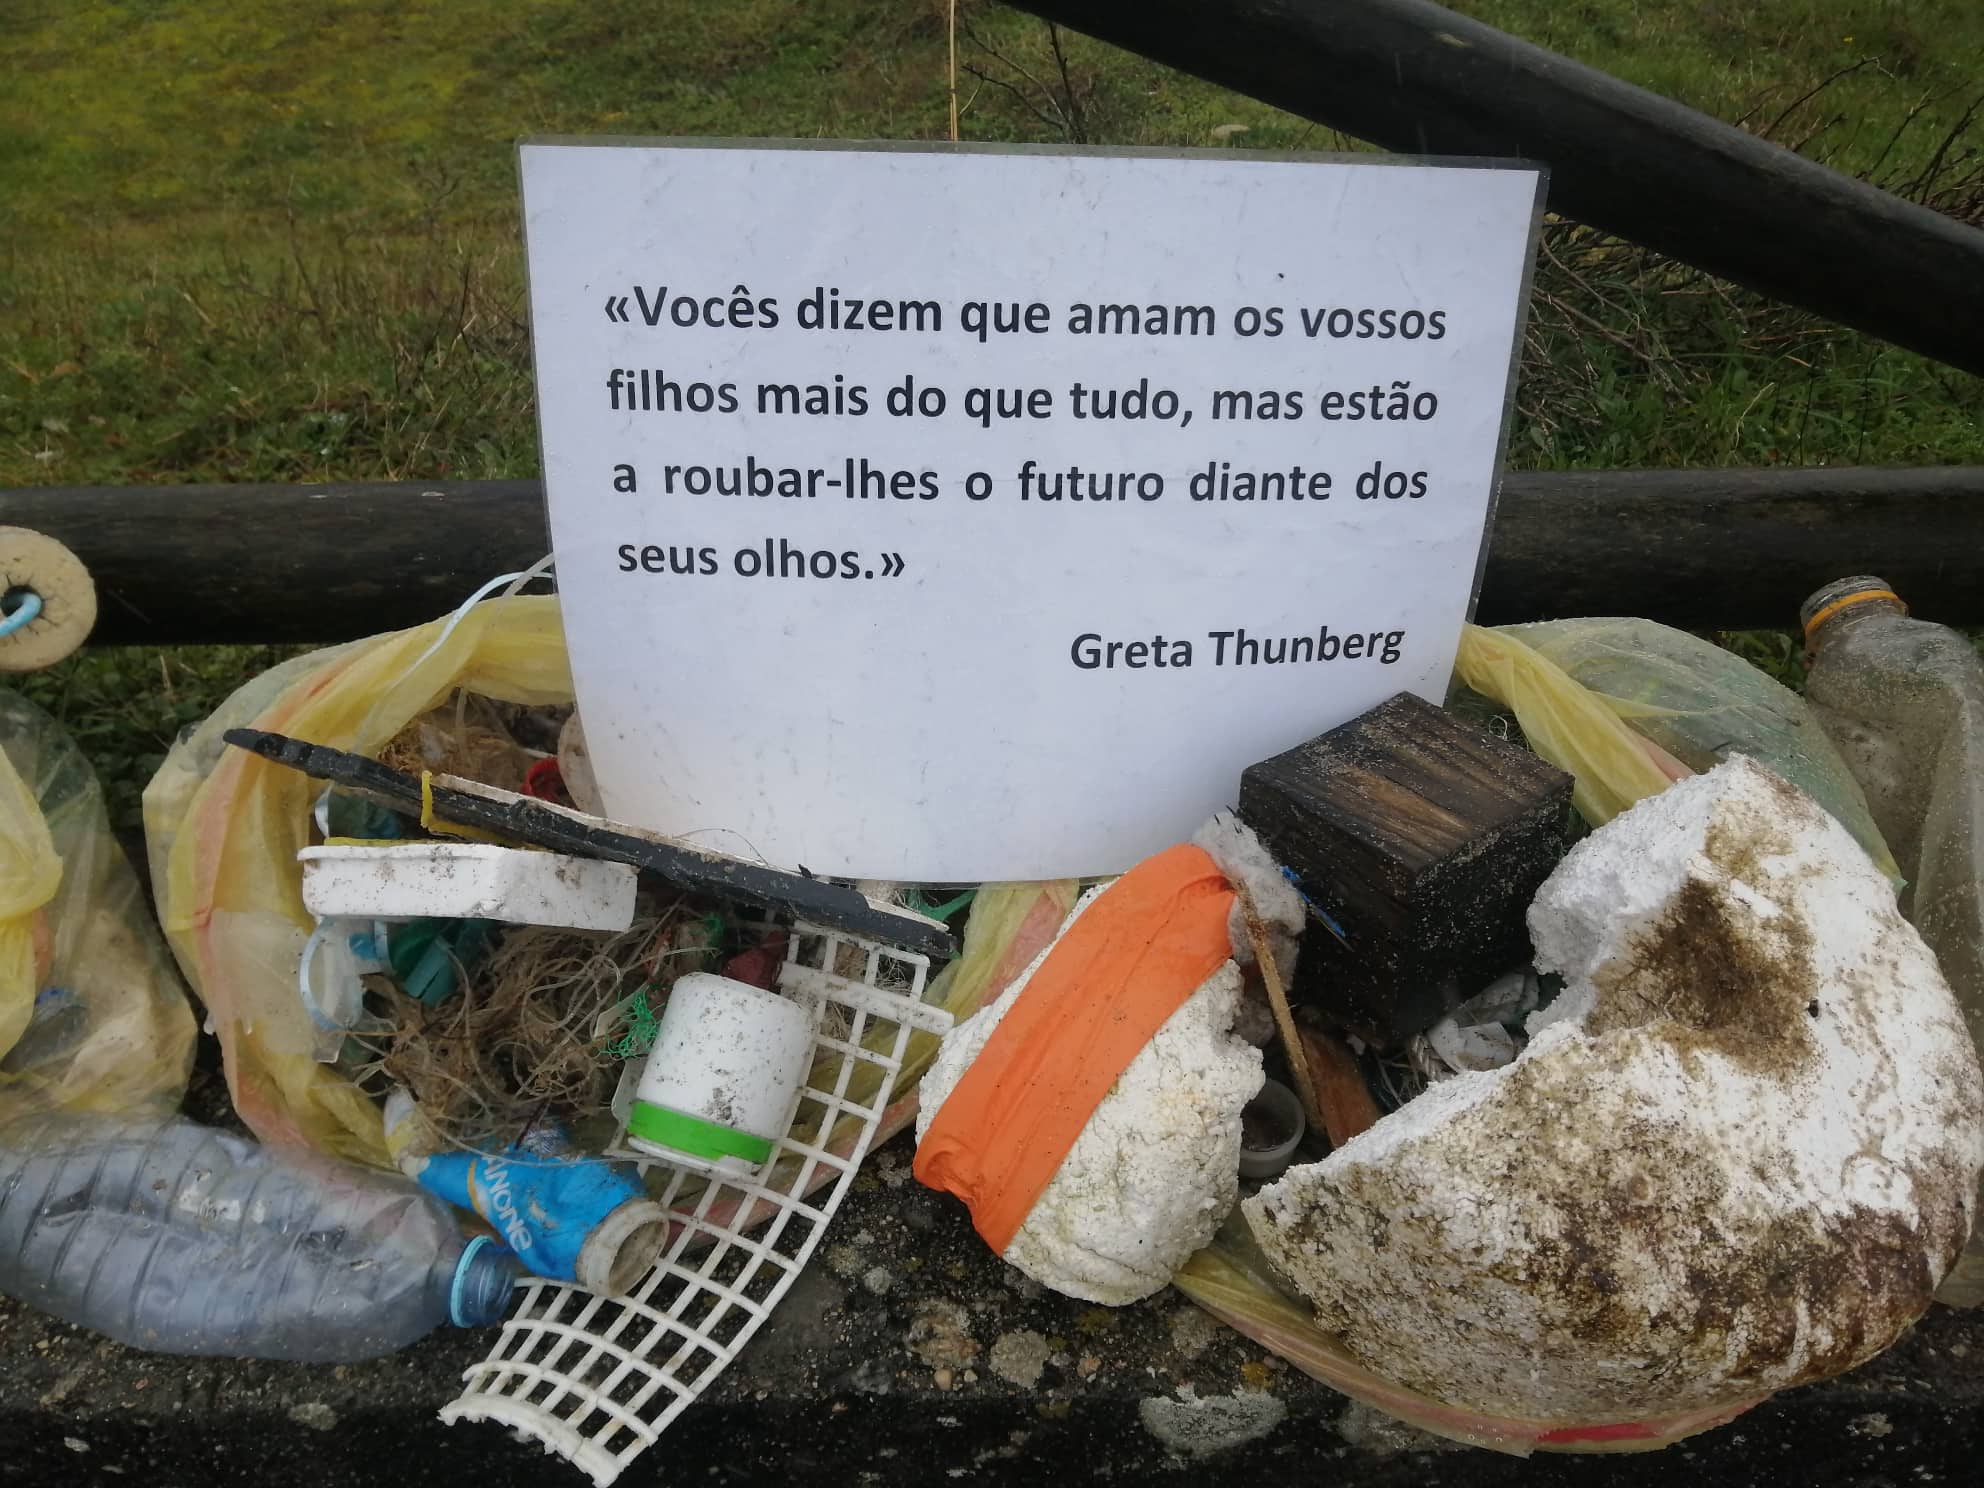 «Vocês dizem que amam os vossos
filhos mais do que tudo, mas estão
a roubar-lhes o futuro diante dos
seus olhos.»
Greta Thunberg
ANONE